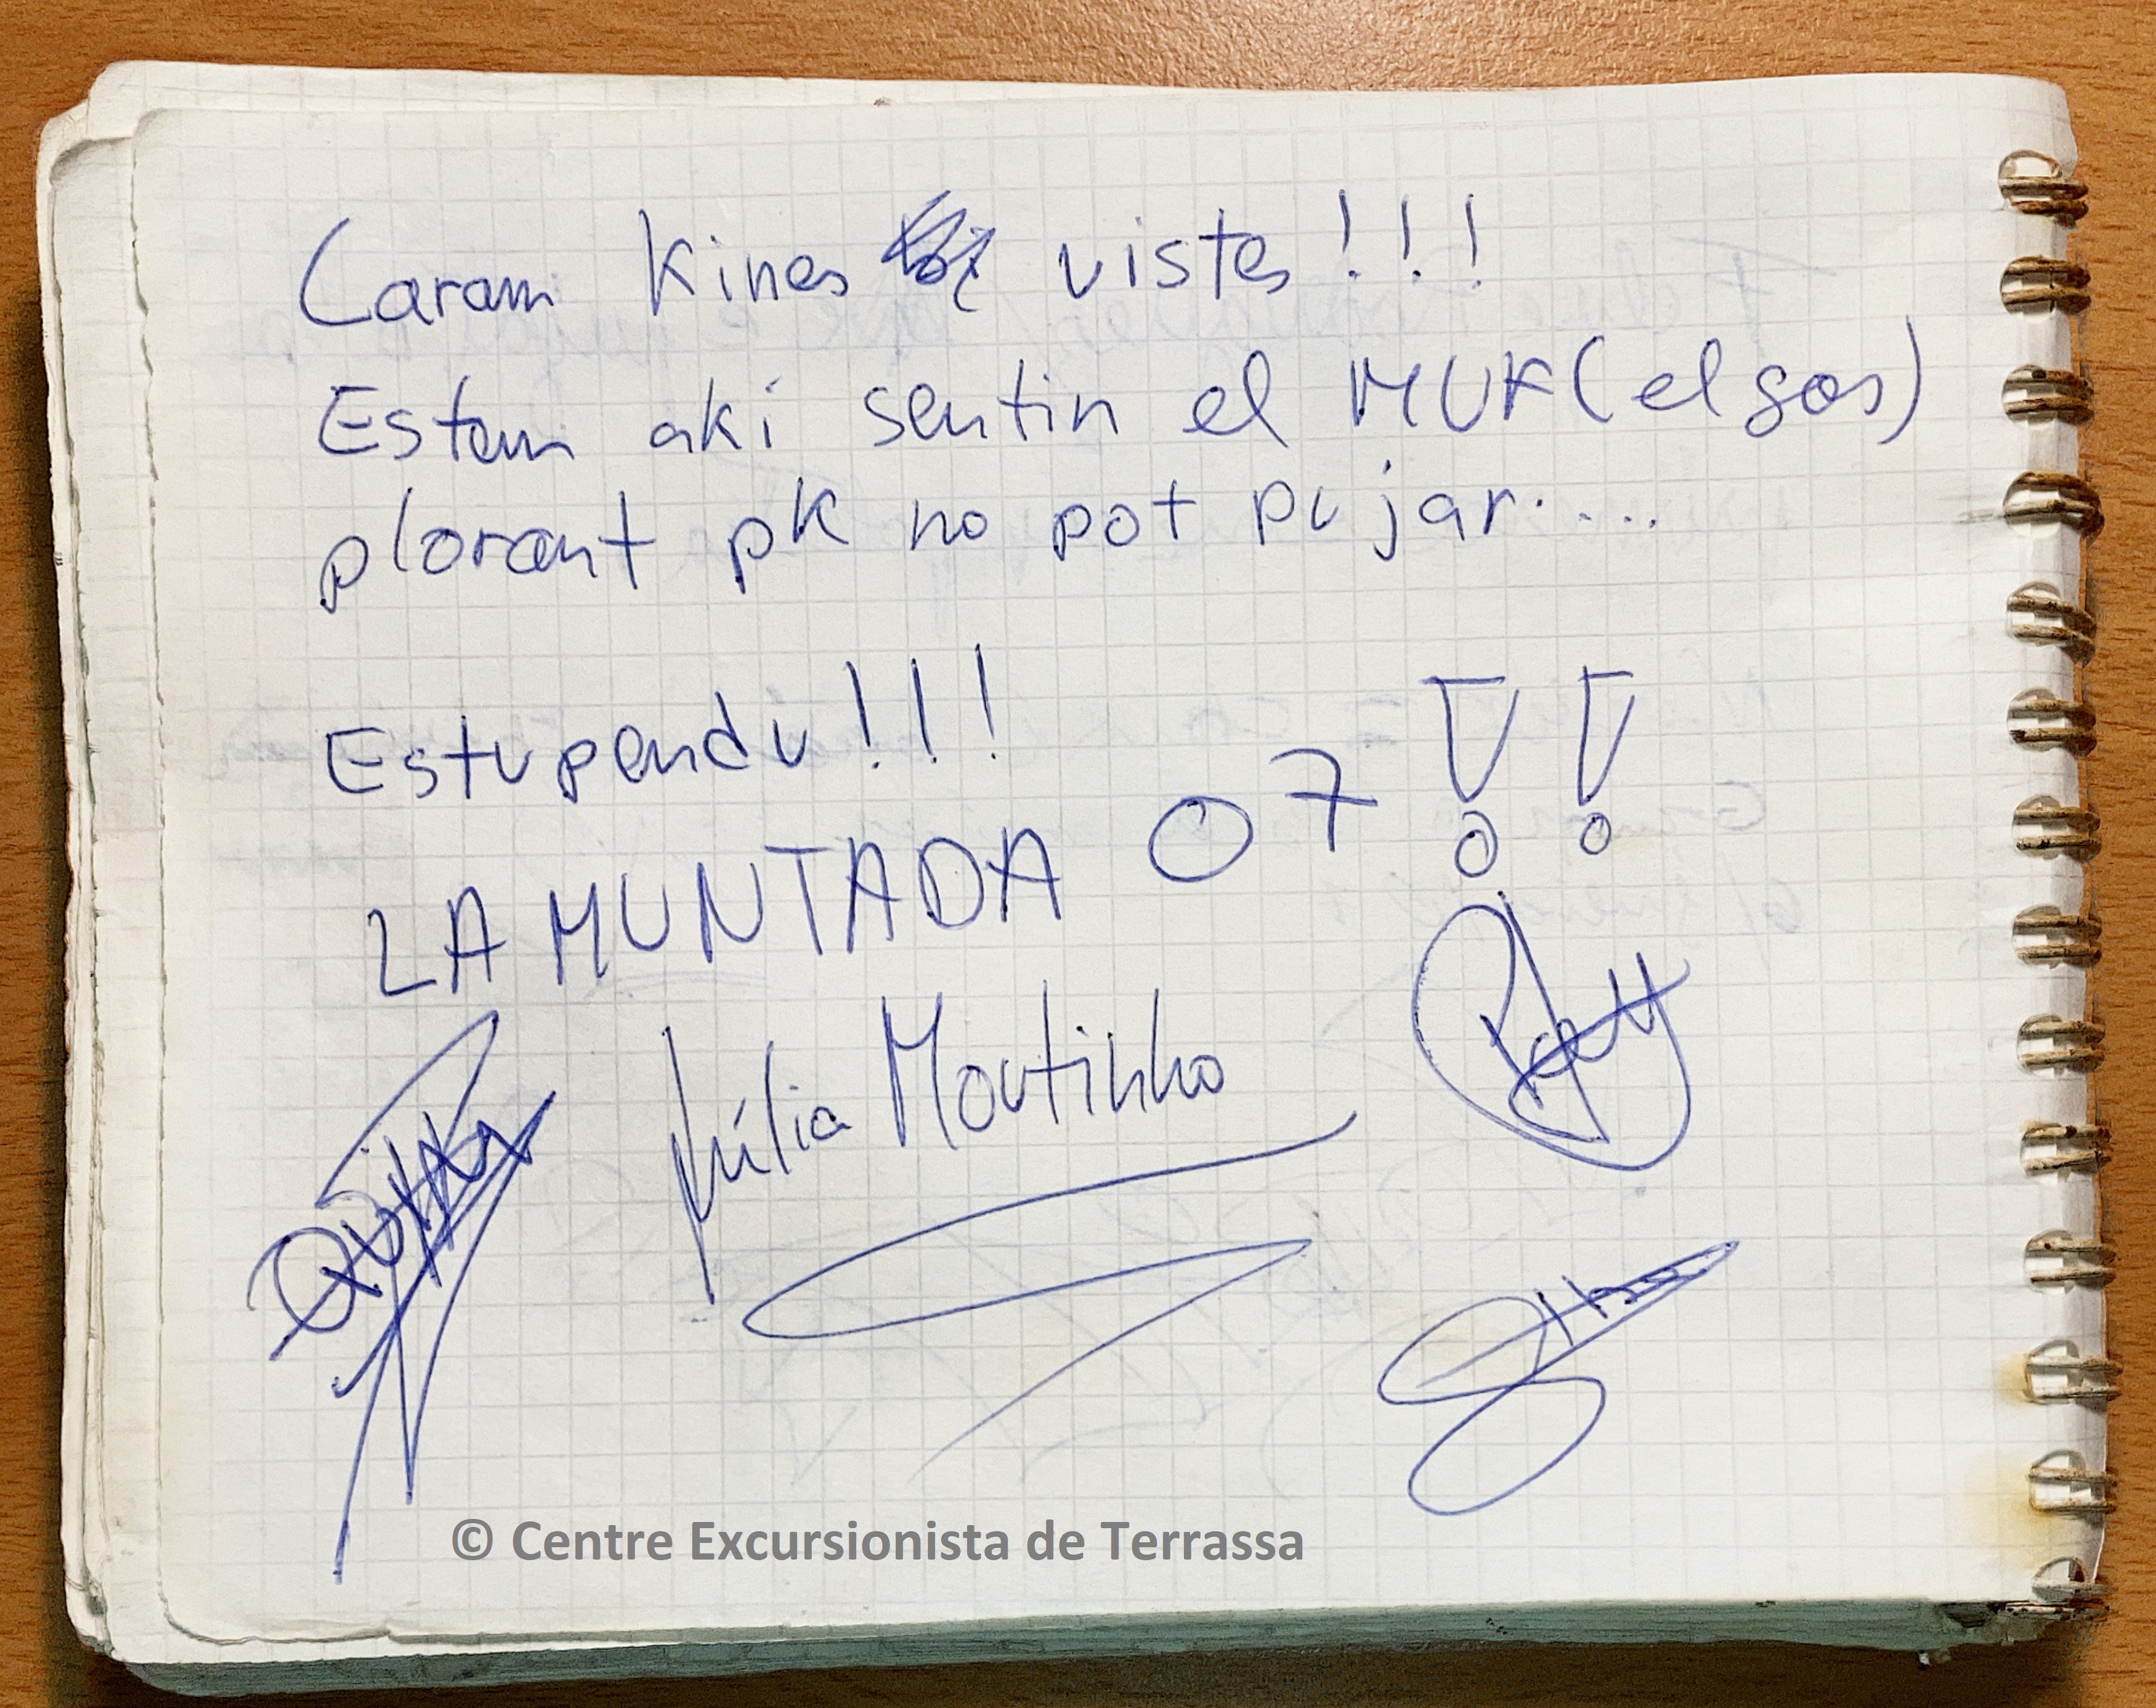 Caram Kines vistes!!!
Estem aki sentin el MUK (el gos)
plorant pk no pot pujar.....
Estupendu!!!
LA MUNTADA 07!!
Júlia Moutinho
© Centre Excursionista de Terrassa